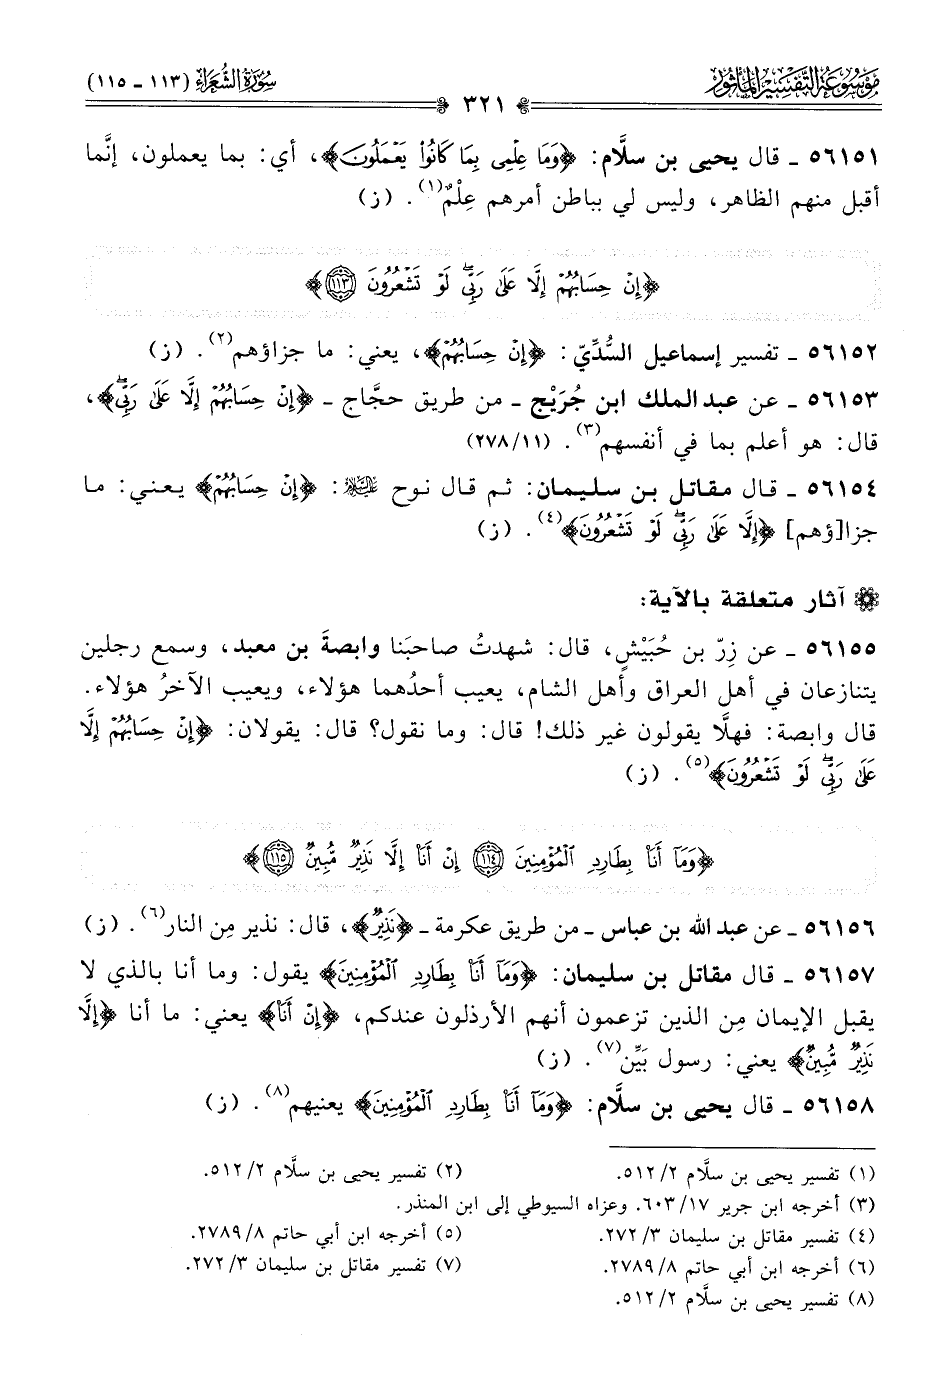 موسوعة التفسير المأثور
سورة الشعراء (١١٣ - ١١٥)
٣٢١
٥٦١٥١ - قال يحيى بن سلَّام: ﴿وَمَا عِلْمِى بِمَا كَانُوا۟ يَعْمَلُونَ﴾، أي: بما يعملون، إنَّما
أقبل منهم الظاهر، وليس لي بباطن أمرهم عِلْمٌ(١). (ز)
﴿إِنْ حِسَابُهُمْ إِلَّا عَلَىٰ رَبِّىۖ لَوْ تَشْعُرُونَ ١١٣﴾
٥٦١٥٢ - تفسير إسماعيل السُّدِّيّ: ﴿إِنْ حِسَابُهُمْ﴾، يعني: ما جزاؤهم(٢). (ز)
٥٦١٥٣ - عن عبدالملك ابن جُرَيْج - من طريق حجَّاج - ﴿إِنْ حِسَابُهُمْ إِلَّا عَلَىٰ رَبِّىۖ﴾،
قال: هو أعلم بما في أنفسهم(٣). (١١/٢٧٨)
٥٦١٥٤ - قال مقاتل بن سليمان: ثم قال نوح عليه السلام: ﴿إِنْ حِسَابُهُمْ﴾ يعني: ما
جزا[ؤهم] ﴿إِلَّا عَلَىٰ رَبِّىۖ لَوْ تَشْعُرُونَ﴾(٤). (ز)
آثار متعلقة بالآية:
٥٦١٥٥ - عن زِرّ بن حُبَيْشٍ، قال: شهدتُ صاحبَنا وابصةَ بن معبد، وسمع رجلين
يتنازعان في أهل العراق وأهل الشام، يعيب أحدُهما هؤلاء، ويعيب الآخرُ هؤلاء.
قال وابصة: فهلَّا يقولون غير ذلك! قال: وما نقول؟ قال: يقولان: ﴿إِنْ حِسَابُهُمْ إِلَّا
عَلَىٰ رَبِّىۖ لَوْ تَشْعُرُونَ﴾(٥). (ز)
﴿وَمَآ أَنَا۠ بِطَارِدِ ٱلْمُؤْمِنِينَ ١١٤ إِنْ أَنَا۠ إِلَّا نَذِيرٌ مُّبِينٌ ١١٥﴾
٥٦١٥٦ - عن عبد الله بن عباس - من طريق عكرمة - ﴿نَذِيرٌ﴾، قال: نذير مِن النار(٦). (ز)
٥٦١٥٧ - قال مقاتل بن سليمان: ﴿وَمَآ أَنَا۠ بِطَارِدِ ٱلْمُؤْمِنِينَ﴾ يقول: وما أنا بالذي لا
يقبل الإيمان مِن الذين تزعمون أنهم الأرذلون عندكم، ﴿إِنْ أَنَا۠﴾ يعني: ما أنا ﴿إِلَّا
نَذِيرٌ مُّبِينٌ﴾ يعني: رسول بَيِّن(٧). (ز)
٥٦١٥٨ - قال يحيى بن سلَّام: ﴿وَمَآ أَنَا۠ بِطَارِدِ ٱلْمُؤْمِنِينَ﴾ يعنيهم(٨). (ز)
(١) تفسير يحيى بن سلَّام ٢/ ٥١٢. (٢) تفسير يحيى بن سلَّام ٢/ ٥١٢.
(٣) أخرجه ابن جرير ١٧/ ٦٠٣. وعزاه السيوطي إلى ابن المنذر.
(٤) تفسير مقاتل بن سليمان ٣/ ٢٧٢. (٥) أخرجه ابن أبي حاتم ٨/ ٢٧٨٩.
(٦) أخرجه ابن أبي حاتم ٨/ ٢٧٨٩. (٧) تفسير مقاتل بن سليمان ٣/ ٢٧٢.
(٨) تفسير يحيى بن سلَّام ٢/ ٥١٢.